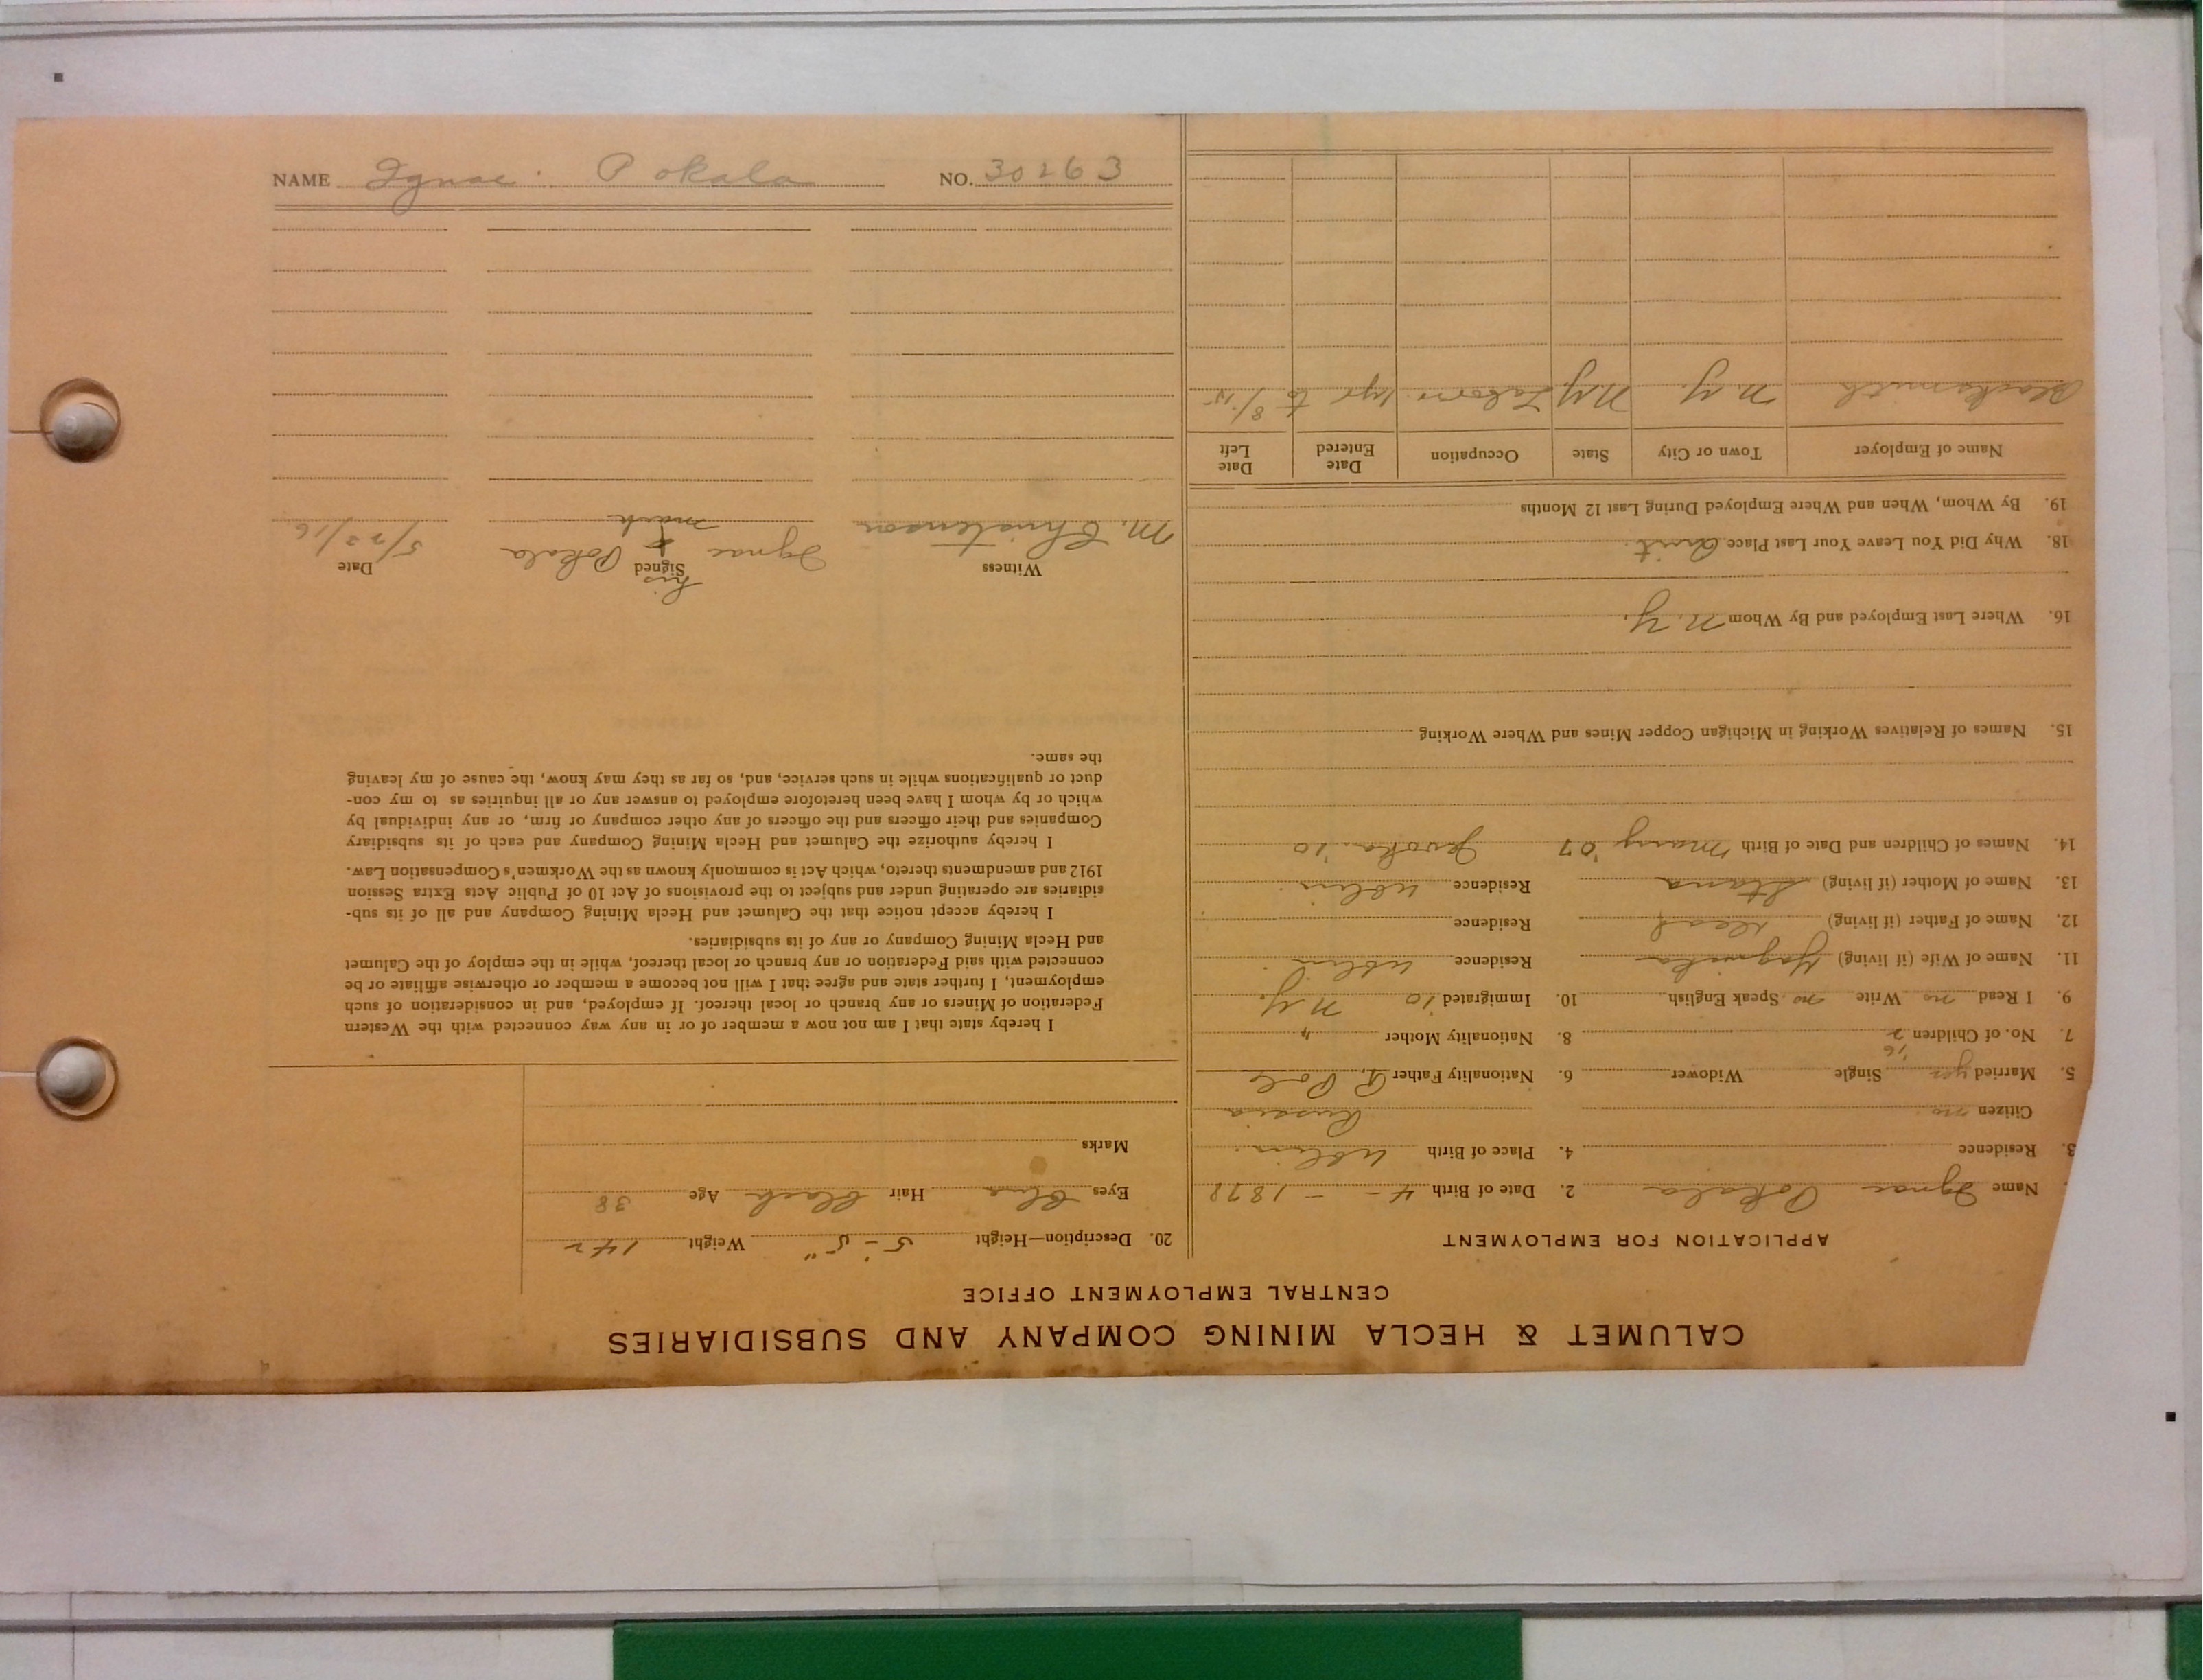 NAME Ignac Pokala NO. 30263
CALUMET & HECLA MINING COMPANY AND SUBSIDIARIES
CENTRAL EMPLOYMENT OFFICE
APPLICATION FOR EMPLOYMENT
Name Ignac Pokala 2. Date of Birth 4 - - 1878
3. Residence 4. Place of Birth
Citizen no Russia
5. Married yes Single Widower 6. Nationality Father R. Pole
7. No. of Children 2 8. Nationality Mother "
9. I Read no Write no Speak English 10. Immigrated '10 N.Y.
11. Name of Wife (if living) Residence
12. Name of Father (if living) dead Residence
13. Name of Mother (if living) Residence
14. Names of Children and Date of Birth Mary '07 '10
15. Names of Relatives Working in Michigan Copper Mines and Where Working
16. Where Last Employed and By Whom N.Y.
18. Why Did You Leave Your Last Place Quit
19. By Whom, When and Where Employed During Last 12 Months
Name of Employer Town or City State Occupation Date Entered Date Left
Blacksmith N.Y. NY Labor 1yr to 8/15
20. Description—Height 5'-5" Weight 142
Eyes Blue Hair Black Age 38
Marks
I hereby state that I am not now a member of or in any way connected with the Western
Federation of Miners or any branch or local thereof. If employed, and in consideration of such
employment, I further state and agree that I will not become a member or otherwise affiliate or be
connected with said Federation or any branch or local thereof, while in the employ of the Calumet
and Hecla Mining Company or any of its subsidiaries.
I hereby accept notice that the Calumet and Hecla Mining Company and all of its sub-
sidiaries are operating under and subject to the provisions of Act 10 of Public Acts Extra Session
1912 and amendments thereto, which Act is commonly known as the Workmen's Compensation Law.
I hereby authorize the Calumet and Hecla Mining Company and each of its subsidiary
Companies and their officers and the officers of any other company or firm, or any individual by
which or by whom I have been heretofore employed to answer any or all inquiries as to my con-
duct or qualifications while in such service, and, so far as they may know, the cause of my leaving
the same.
Witness Signed Date
his
M. Christenson Ignac x Pokala 5/23/16
mark